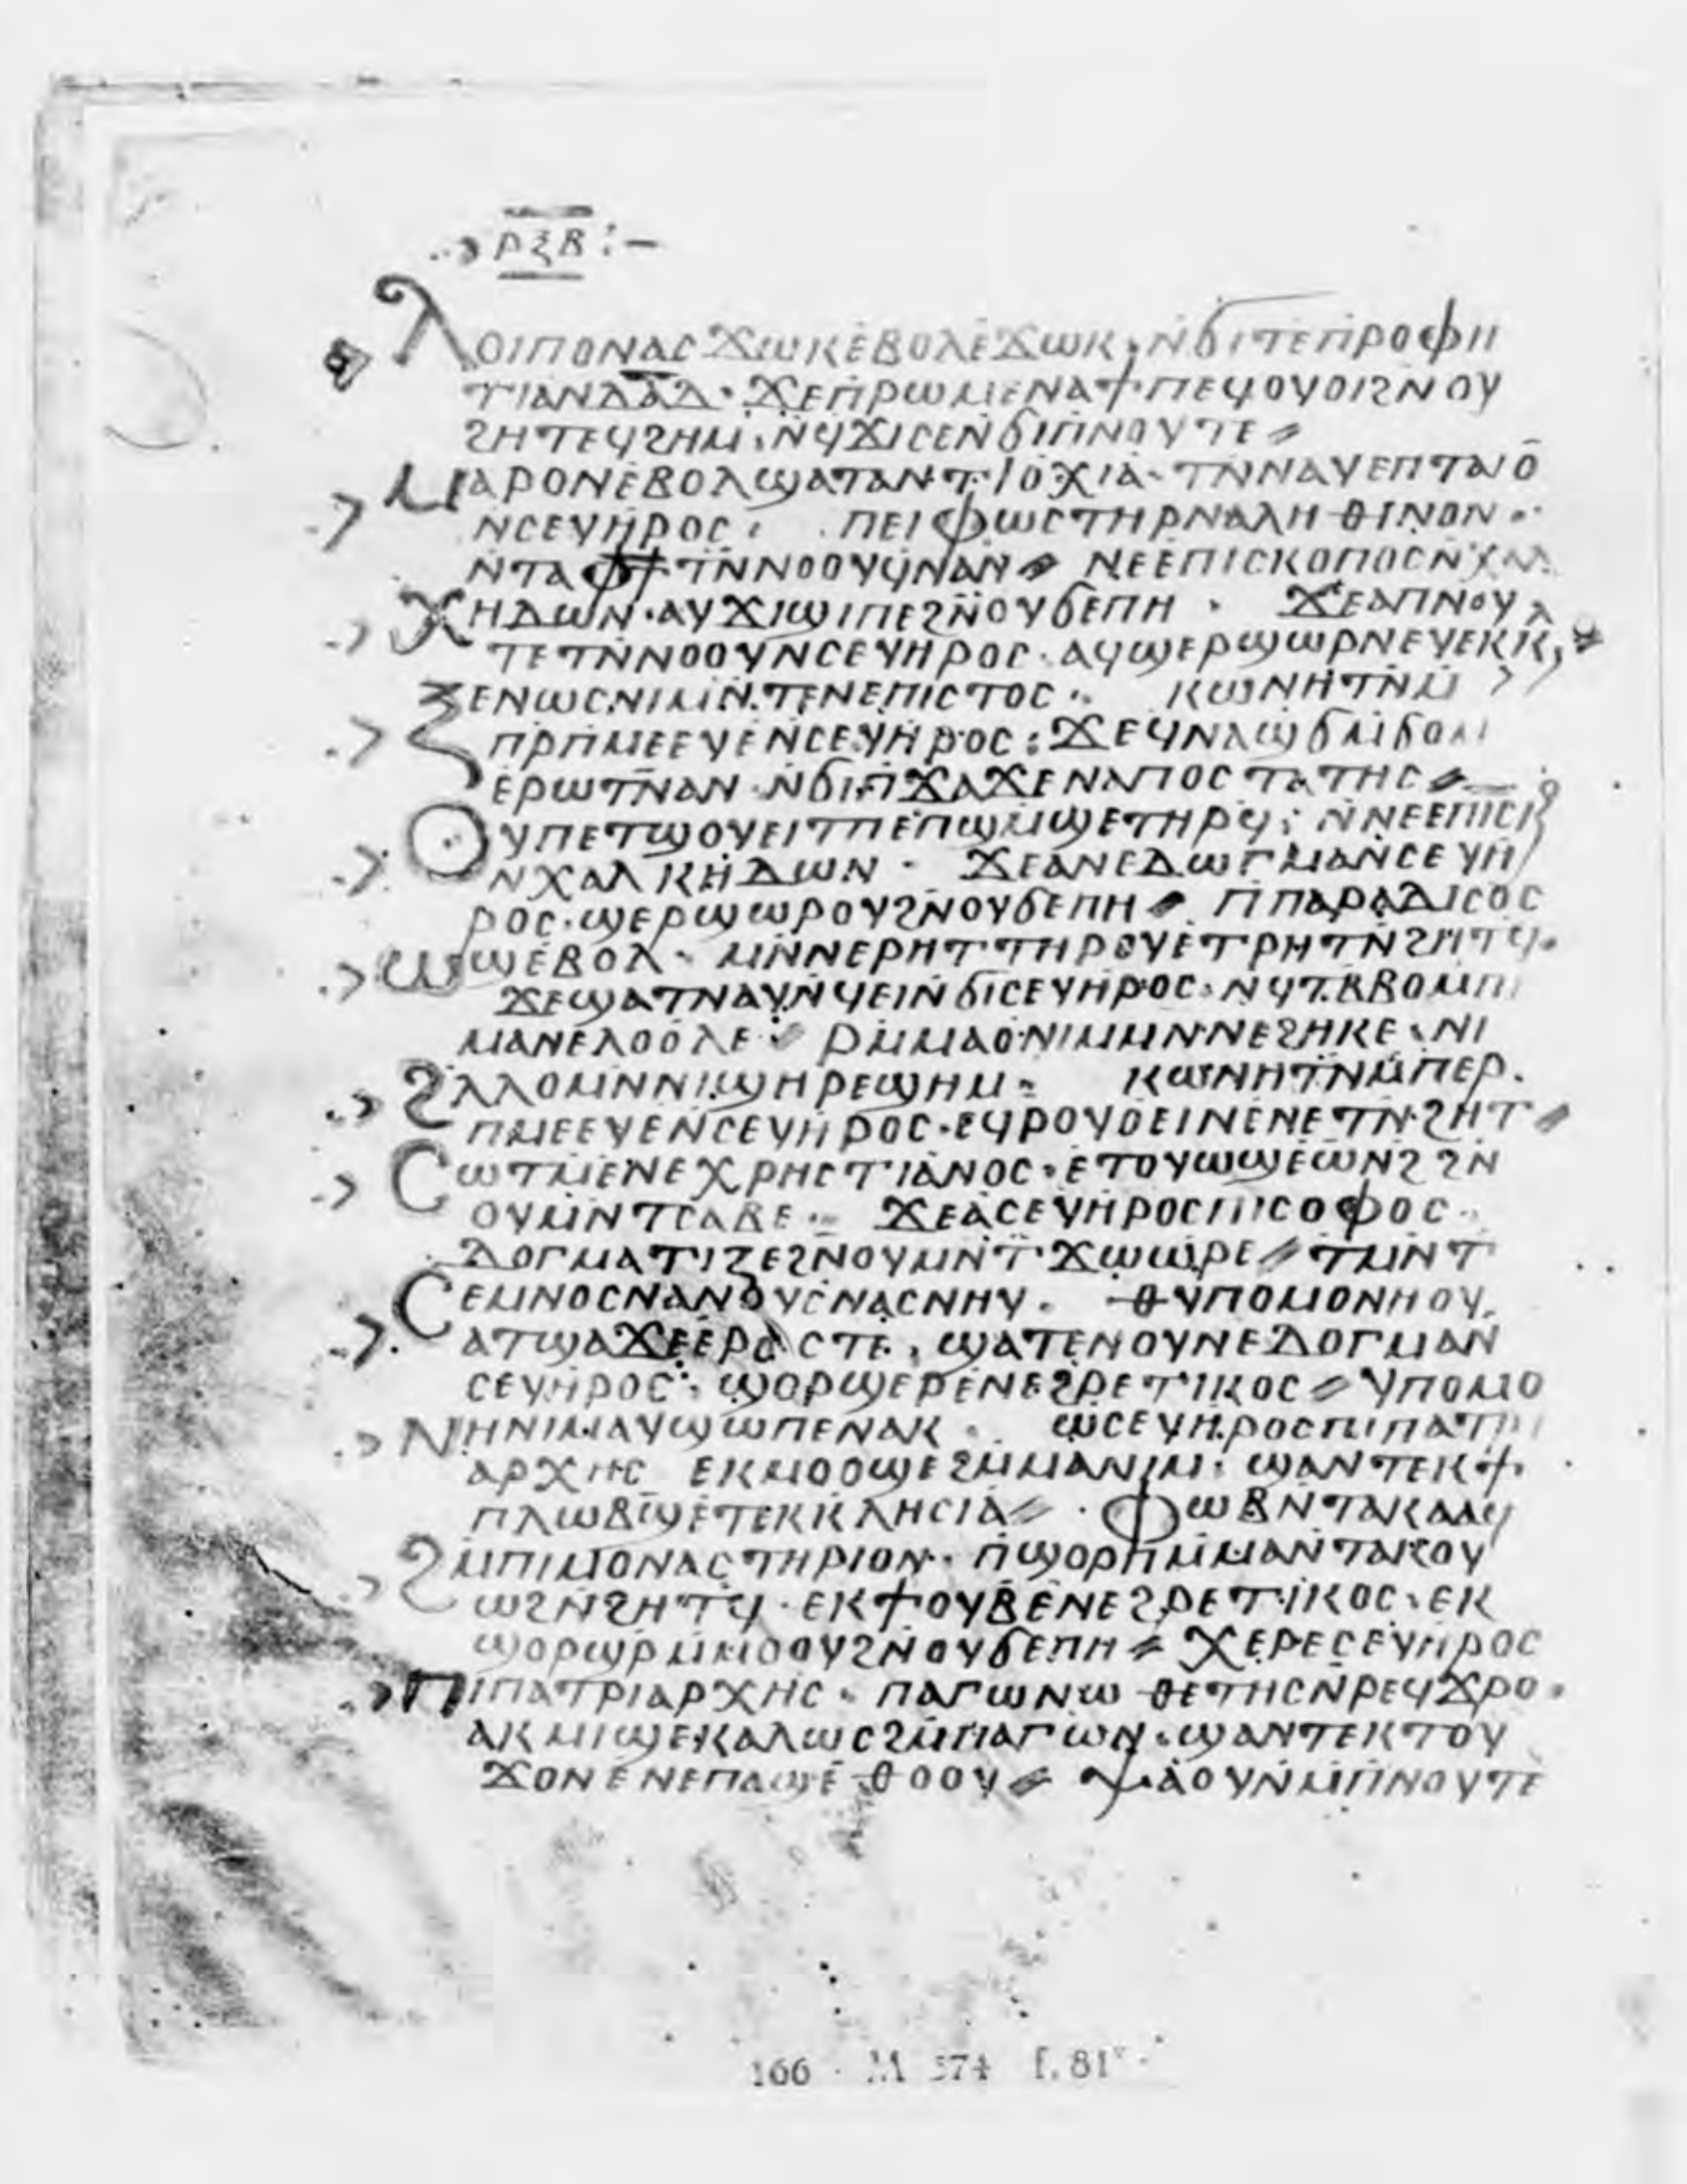 ⲣⲝⲃ:—
ⲗⲟⲓⲡⲟⲛⲁⲥϫⲱⲕⲉⲃⲟⲗⲉϫⲱⲕ·ⲛϭⲓⲧⲉⲡⲣⲟⲫⲏ
ⲧⲓⲁⲛⲇⲁⲇ·ϫⲉⲡⲣⲱⲙⲉⲛⲁϯⲡⲉϥⲟⲩⲟⲓϩⲛⲟⲩ
ϩⲏⲧⲉϥϩⲏⲙ·ⲛϥϫⲓⲥⲉⲛϭⲓⲡⲛⲟⲩⲧⲉ⸗
ⲙⲁⲣⲟⲛⲉⲃⲟⲗϣⲁⲧⲁⲛⲧⲓⲟⲭⲓⲁ·ⲧⲛⲛⲁⲩⲉⲡⲧⲁⲓⲟ
ⲛⲥⲉⲩⲏⲣⲟⲥ· ⲡⲉⲓⲫⲱⲥⲧⲏⲣⲛⲁⲗⲏⲑⲓⲛⲟⲛ··
ⲛⲧⲁⲫϯⲧⲛⲛⲟⲟⲩϥⲛⲁⲛ⸗ ⲛⲉⲉⲡⲓⲥⲕⲟⲡⲟⲥⲛⲭⲁⲗ
ⲭⲏⲇⲱⲛ·ⲁⲩϫⲓϣⲓⲡⲉϩⲛⲟⲩϭⲉⲡⲏ· ϫⲉⲁⲡⲛⲟⲩ
ⲧⲉⲧⲛⲛⲟⲟⲩⲛⲥⲉⲩⲏⲣⲟⲥ·ⲁϥϣⲉⲣϣⲱⲣⲛⲉⲩⲉⲕⲕ,
ⲝⲉⲛⲱⲥⲛⲓⲙⲛⲧⲉⲛⲉⲡⲓⲥⲧⲟⲥ·· ⲕⲱⲛⲏⲧⲛⲙ
ⲡⲣⲡⲙⲉⲉⲩⲉⲛⲥⲉⲩⲏⲣⲟⲥ:ϫⲉϥⲛⲁϣϭⲙϭⲟⲙ
ⲉⲣⲱⲧⲛⲁⲛ·ⲛϭⲓⲡϫⲁϫⲉⲛⲁⲡⲟⲥⲧⲁⲧⲏⲥ⸗
ⲟⲩⲡⲉⲧϣⲟⲩⲉⲓⲧⲡⲉⲡϣⲙϣⲉⲧⲏⲣϥ:ⲛⲛⲉⲉⲡⲓⲥⲕ
ⲛⲭⲁⲗⲕⲏⲇⲱⲛ· ϫⲉⲁⲛⲉⲇⲱⲅⲙⲁⲛⲥⲉⲩⲏ
ⲣⲟⲥ·ϣⲉⲣϣⲱⲣⲟⲩϩⲛⲟⲩϭⲉⲡⲏ⸗ ⲡⲡⲁⲣⲁⲇⲓⲥⲟⲥ
ⲱϣⲉⲃⲟⲗ· ⲙⲛⲛⲉⲣⲏⲧⲧⲏⲣⲟⲩⲉⲧⲣⲏⲧⲛϩⲏⲧϥ·
ϫⲉϣⲁⲧⲛⲁⲩⲛϥⲉⲓⲛϭⲓⲥⲉⲩⲏⲣⲟⲥ·ⲛϥⲧⲃⲃⲟⲙⲡ
ⲙⲁⲛⲉⲗⲟⲟⲗⲉ⸗ ⲣⲙⲙⲁⲟⲛⲓⲙⲙⲛⲛⲉϩⲏⲕⲉ·ⲛⲓ
ϩⲗⲗⲟⲙⲛⲛⲓϣⲏⲣⲉϣⲏⲙ· ⲕⲱⲛⲏⲧⲛⲙⲡⲉⲣ·
ⲡⲙⲉⲉⲩⲉⲛⲥⲉⲩⲏⲣⲟⲥ·ⲉϥⲣⲟⲩⲟⲉⲓⲛⲉⲛⲉⲧⲛϩⲏⲧ⸗
ⲥⲱⲧⲙⲉⲛⲉⲭⲣⲏⲥⲧⲓⲁⲛⲟⲥ·ⲉⲧⲟⲩⲱϣⲉⲱⲛϩϩⲛ
ⲟⲩⲙⲛⲧⲥⲁⲃⲉ· ϫⲉⲁⲥⲉⲩⲏⲣⲟⲥⲡⲓⲥⲟⲫⲟⲥ·
ⲇⲟⲅⲙⲁⲧⲓⲍⲉϩⲛⲟⲩⲙⲛⲧϫⲱⲱⲣⲉ⸗ ⲧⲙⲛⲧ
ⲥⲉⲙⲛⲟⲥⲛⲁⲛⲟⲩⲥⲛⲁⲥⲛⲏⲩ· ⲑⲩⲡⲟⲙⲟⲛⲏⲟⲩ
ⲁⲧϣⲁϫⲉⲉⲣⲟⲥⲧⲉ·ϣⲁⲧⲉⲛⲟⲩⲛⲉⲇⲟⲅⲙⲁⲛ
ⲥⲉⲩⲏⲣⲟⲥ:ϣⲟⲣϣⲉⲣⲉⲛⲉϩⲣⲉⲧⲓⲕⲟⲥ⸗ⲩⲡⲟⲙⲟ
ⲛⲏⲛⲓⲙⲁⲩϣⲱⲡⲉⲛⲁⲕ· ⲱⲥⲉⲩⲏⲣⲟⲥⲡⲓⲡⲁⲧⲣⲓ
ⲁⲣⲭⲏⲥ ⲉⲕⲙⲟⲟϣⲉϩⲙⲙⲁⲛⲓⲙ·ϣⲁⲛⲧⲉⲕϯ
ⲡⲗⲱⲃϣⲉⲧⲉⲕⲕⲗⲏⲥⲓⲁ⸗·ⲫⲱⲃⲛⲧⲁⲕⲁⲁϥ
ϩⲙⲡⲓⲙⲟⲛⲁⲥⲧⲏⲣⲓⲟⲛ·ⲡϣⲟⲣⲡⲙⲙⲁⲛⲧⲁⲕⲟⲩ
ⲱϩⲛϩⲏⲧϥ·ⲉⲕϯⲟⲩⲃⲉⲛⲉϩⲣⲉⲧⲓⲕⲟⲥ·ⲉⲕ
ϣⲟⲣϣⲣⲙⲙⲟⲟⲩϩⲛⲟⲩϭⲉⲡⲏ⸗ ⲭⲉⲣⲉⲥⲉⲩⲏⲣⲟⲥ
ⲡⲓⲡⲁⲧⲣⲓⲁⲣⲭⲏⲥ·ⲡⲁⲅⲱⲛⲱⲑⲉⲧⲏⲥⲛⲣⲉϥϫⲣⲟ·
ⲁⲕⲙⲓϣⲉⲕⲁⲗⲱⲥϩⲙⲡⲁⲅⲱⲛ·ϣⲁⲛⲧⲉⲕⲧⲟⲩ
ϫⲟⲛⲉⲛⲉⲡⲁϣⲉⲑⲟⲟⲩ⸗ ⲯⲁⲟⲩⲛⲙⲡⲛⲟⲩⲧⲉ
166 · M 574 f. 81ᵛ·